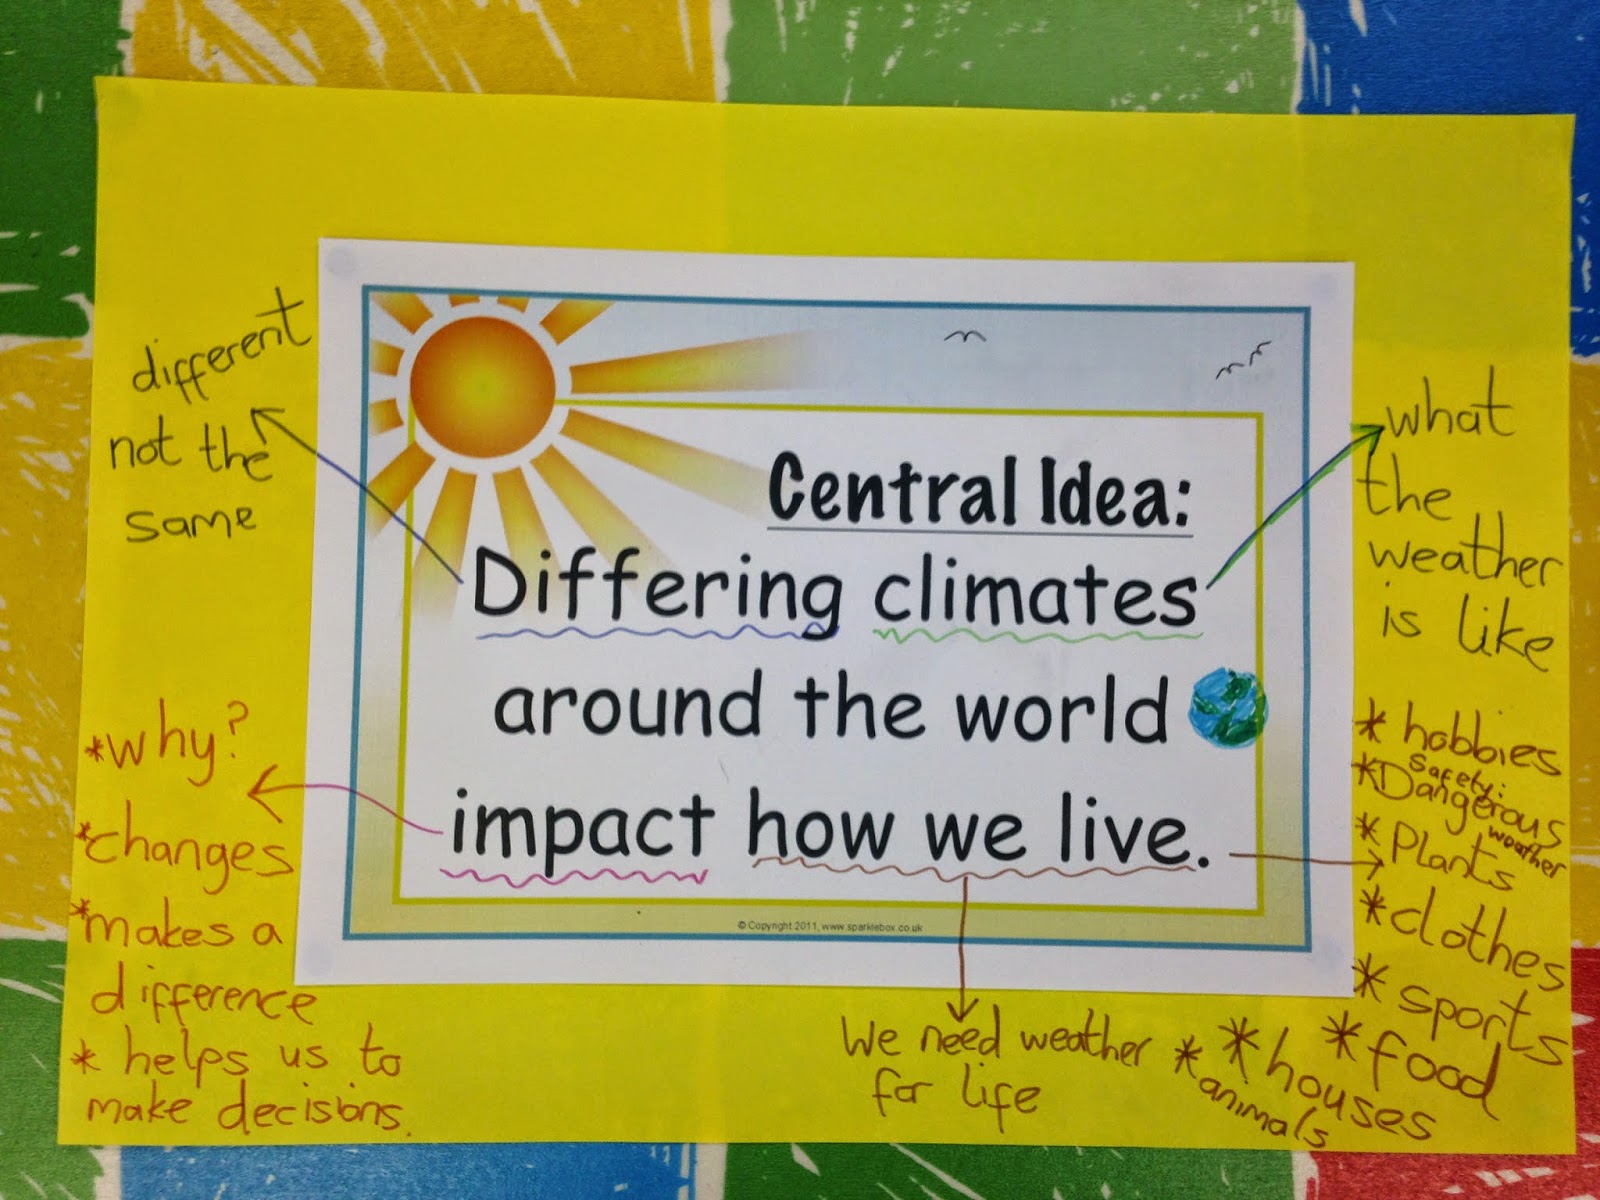 Central Idea:
Differing climates
around the world
impact how we live.
© Copyright 2011, www.sparklebox.co.uk
different
not the
same
*why?
*changes
*makes a
difference
* helps us to
make decisions.
what
the
weather
is like
* hobbies
Safety:
*Dangerous
weather
* Plants
*clothes
* sports
* food
* houses
* animals
We need weather
for life